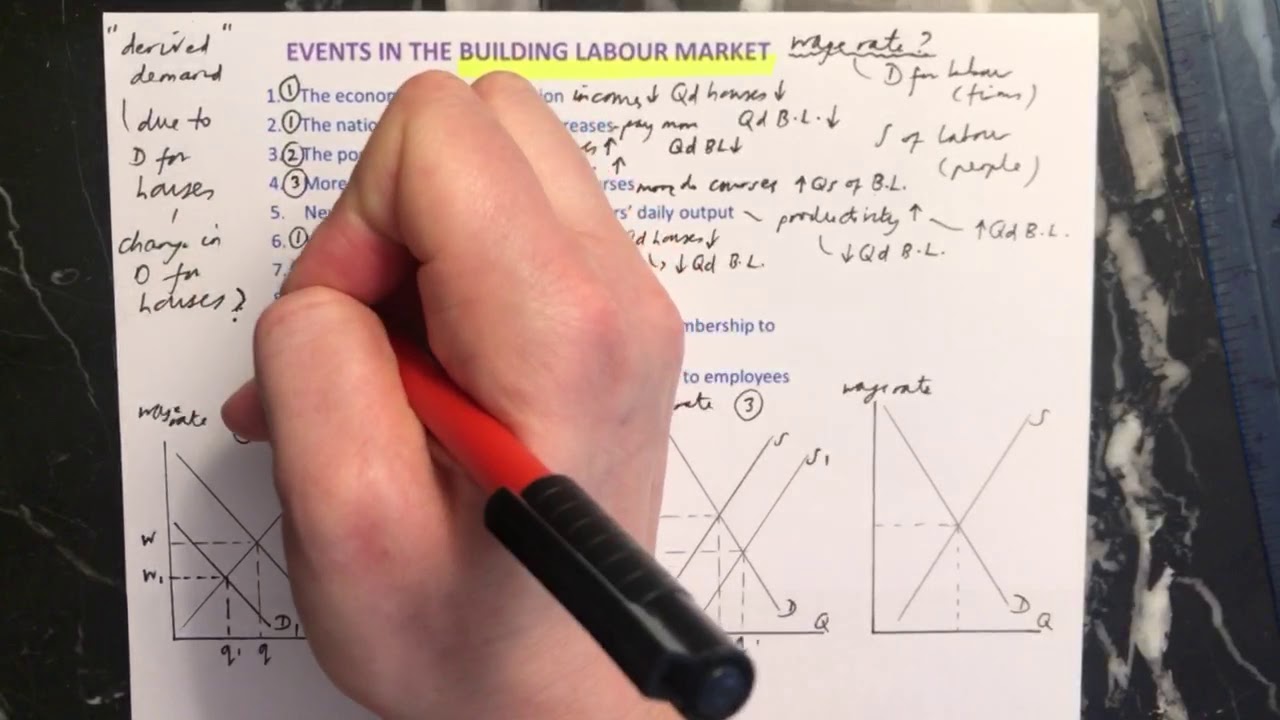 "derived"
demand
due to
D for
houses
change in
D for
houses?
EVENTS IN THE BUILDING LABOUR MARKET wage rate?
D for labour
(firms)
S of labour
(people)
1. ① The econom ion incomes↓ Qd houses↓
2. ① The natio reases - pay more Qd B.L.↓
3. ② The po ↑ Qd BL↓
↑
4. ③ More rses more do courses ↑Qs of B.L.
5. Ne rs' daily output productivity ↑ ↑Qd B.L.
↓Qd B.L.
6. ① Qd houses↓
7. ↓Qd B.L.
mbership to
to employees
wage
rate
W
W₁
D₁
q¹ q
rate ③
S
S₁
D
Q
wage rate
S
D
Q